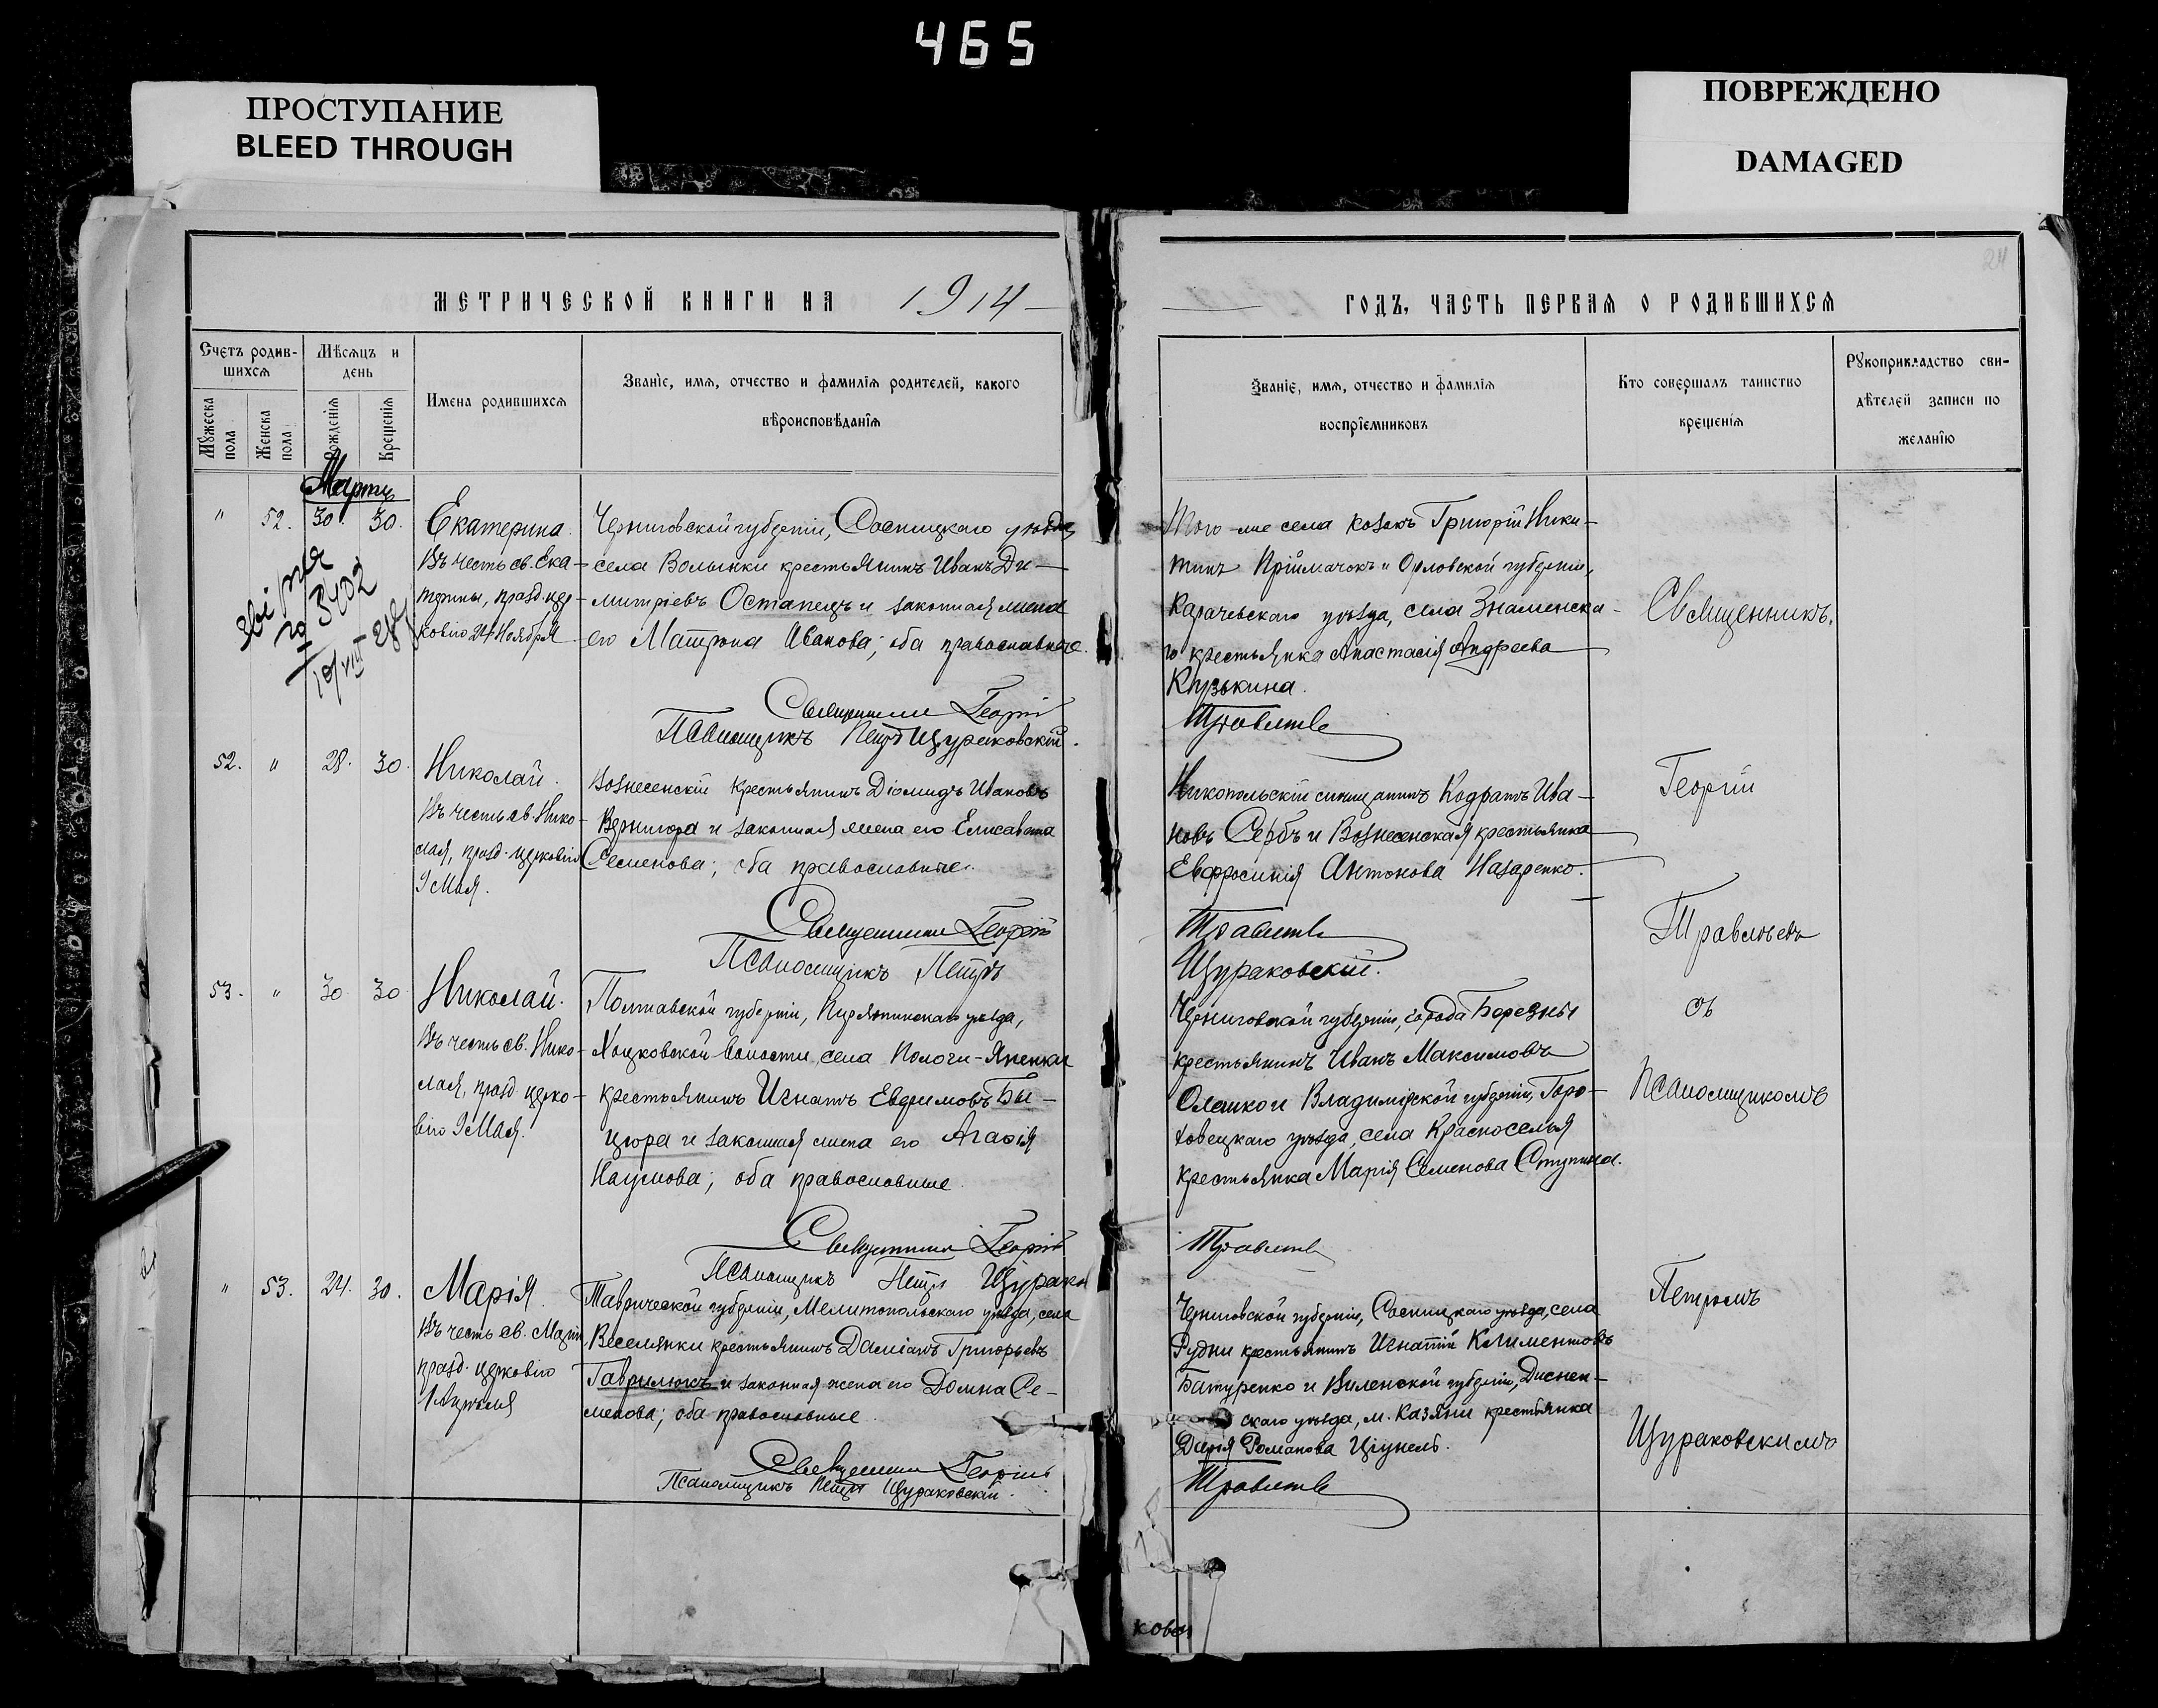 465
ПРОСТУПАНИЕ
BLEED THROUGH
ПОВРЕЖДЕНО
DAMAGED
24
МЕТРИЧЕСКОЙ КНИГИ НА 1914
ГОДЪ, ЧАСТЬ ПЕРВАЯ О РОДИВШИХСЯ
Счетъ родив-
шихся
Мужеска пола
Женска пола
Мѣсяцъ и
день
Рожденія
Крещенія
Имена родившихся
Званіе, имя, отчество и фамилія родителей, какого
вѣроисповѣданія
Званіе, имя, отчество и фамилія
воспріемниковъ
Кто совершалъ таинство
крещенія
Рукоприкладство сви-
дѣтелей записи по
желанію
Мартъ
" 52. 30. 30.
Екатерина.
Въ честь св. Ека-
терины, празд. цер-
ковію 24 Ноября
3402
Черниговской губерніи, Сосницкаго уѣзда
села Волынки крестьянинъ Иванъ Ди-
митріевъ Остапецъ и законная жена
его Матрона Иванова; оба православные.
Священникъ Георгій
Псаломщикъ Петръ Щураковскій.
Того-же села козакъ Григорій Ники-
тинъ Приймачокъ и Орловской губерніи,
Карачевскаго уѣзда, села Знаменска-
го крестьянка Анастасія Андреева
Кузькина.
Травлѣевъ
52. " 28. 30.
Николай.
Въ честь св. Нико-
лая, празд. церковію
9 Мая.
Вознесенскій крестьянинъ Діомидъ Ивановъ
Вернигора и законная жена его Елисавета
Семенова; оба православные.
Священникъ Георгій
Псаломщикъ Петръ
Никопольскій мѣщанинъ Кодратъ Ива-
новъ Сербъ и Вознесенская крестьянка
Евфросинія Антонова Назаренко.
Травлѣевъ
Щураковскій.
53. " 30 30
Николай.
Въ честь св. Нико-
лая, празд. церко-
вію 9 Мая.
Полтавской губерніи, Переяславскаго уѣзда,
Хоцковской волости, села Пологи-Яненки
крестьянинъ Игнатъ Евфимовъ Бы-
цюра и законная жена его Агафія
Наумова; оба православные.
Священникъ Георгій
Псаломщикъ Петръ Щурако
Черниговской губерніи, города Березны
крестьянинъ Иванъ Максимовъ
Олешко и Владимірской губерніи, Горо-
ховецкаго уѣзда, села Красноселья
крестьянка Марія Семенова Ступина.
Травлѣевъ
" 53. 24. 30.
Марія.
Въ честь св. Маріи,
празд. церковію
1 Апрѣля
Таврической губерніи, Мелитопольскаго уѣзда, села
Веселянки крестьянинъ Даміанъ Григорьевъ
Гаврилюкъ и законная жена его Домна Се-
менова; оба православные.
Священникъ Георгій
Псаломщикъ Петръ Щураковскій.
Черниговской губерніи, Сосницкаго уѣзда, села
Рудни крестьянинъ Игнатій Климентовъ
Батуренко и Виленской губерніи, Диснен-
скаго уѣзда, м. Казяны крестьянка
Дарія Романова Ціунель.
Травлѣевъ
Священникъ
Георгій
Травлѣевъ
съ
Псаломщикомъ
Петромъ
Щураковскимъ